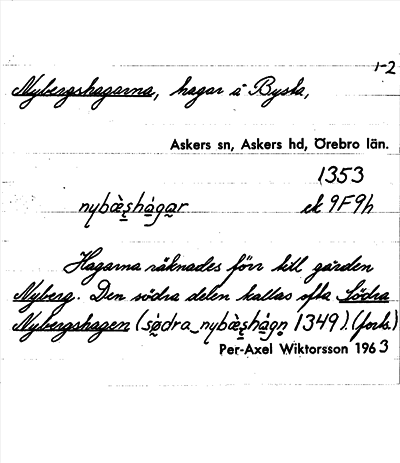 1-2
Nybergshagarna, hagar å Bysta,
Askers sn, Askers hd, Örebro län.
1353
nybæ̀ʂhágar ek 9F9h
Hagarna räknades förr till gården
Nyberg. Den södra delen kallas ofta Södra
Nybergshagen (sø̀dra_nybæ̀ʂhágn 1349). (forts.)
Per-Axel Wiktorsson 1963